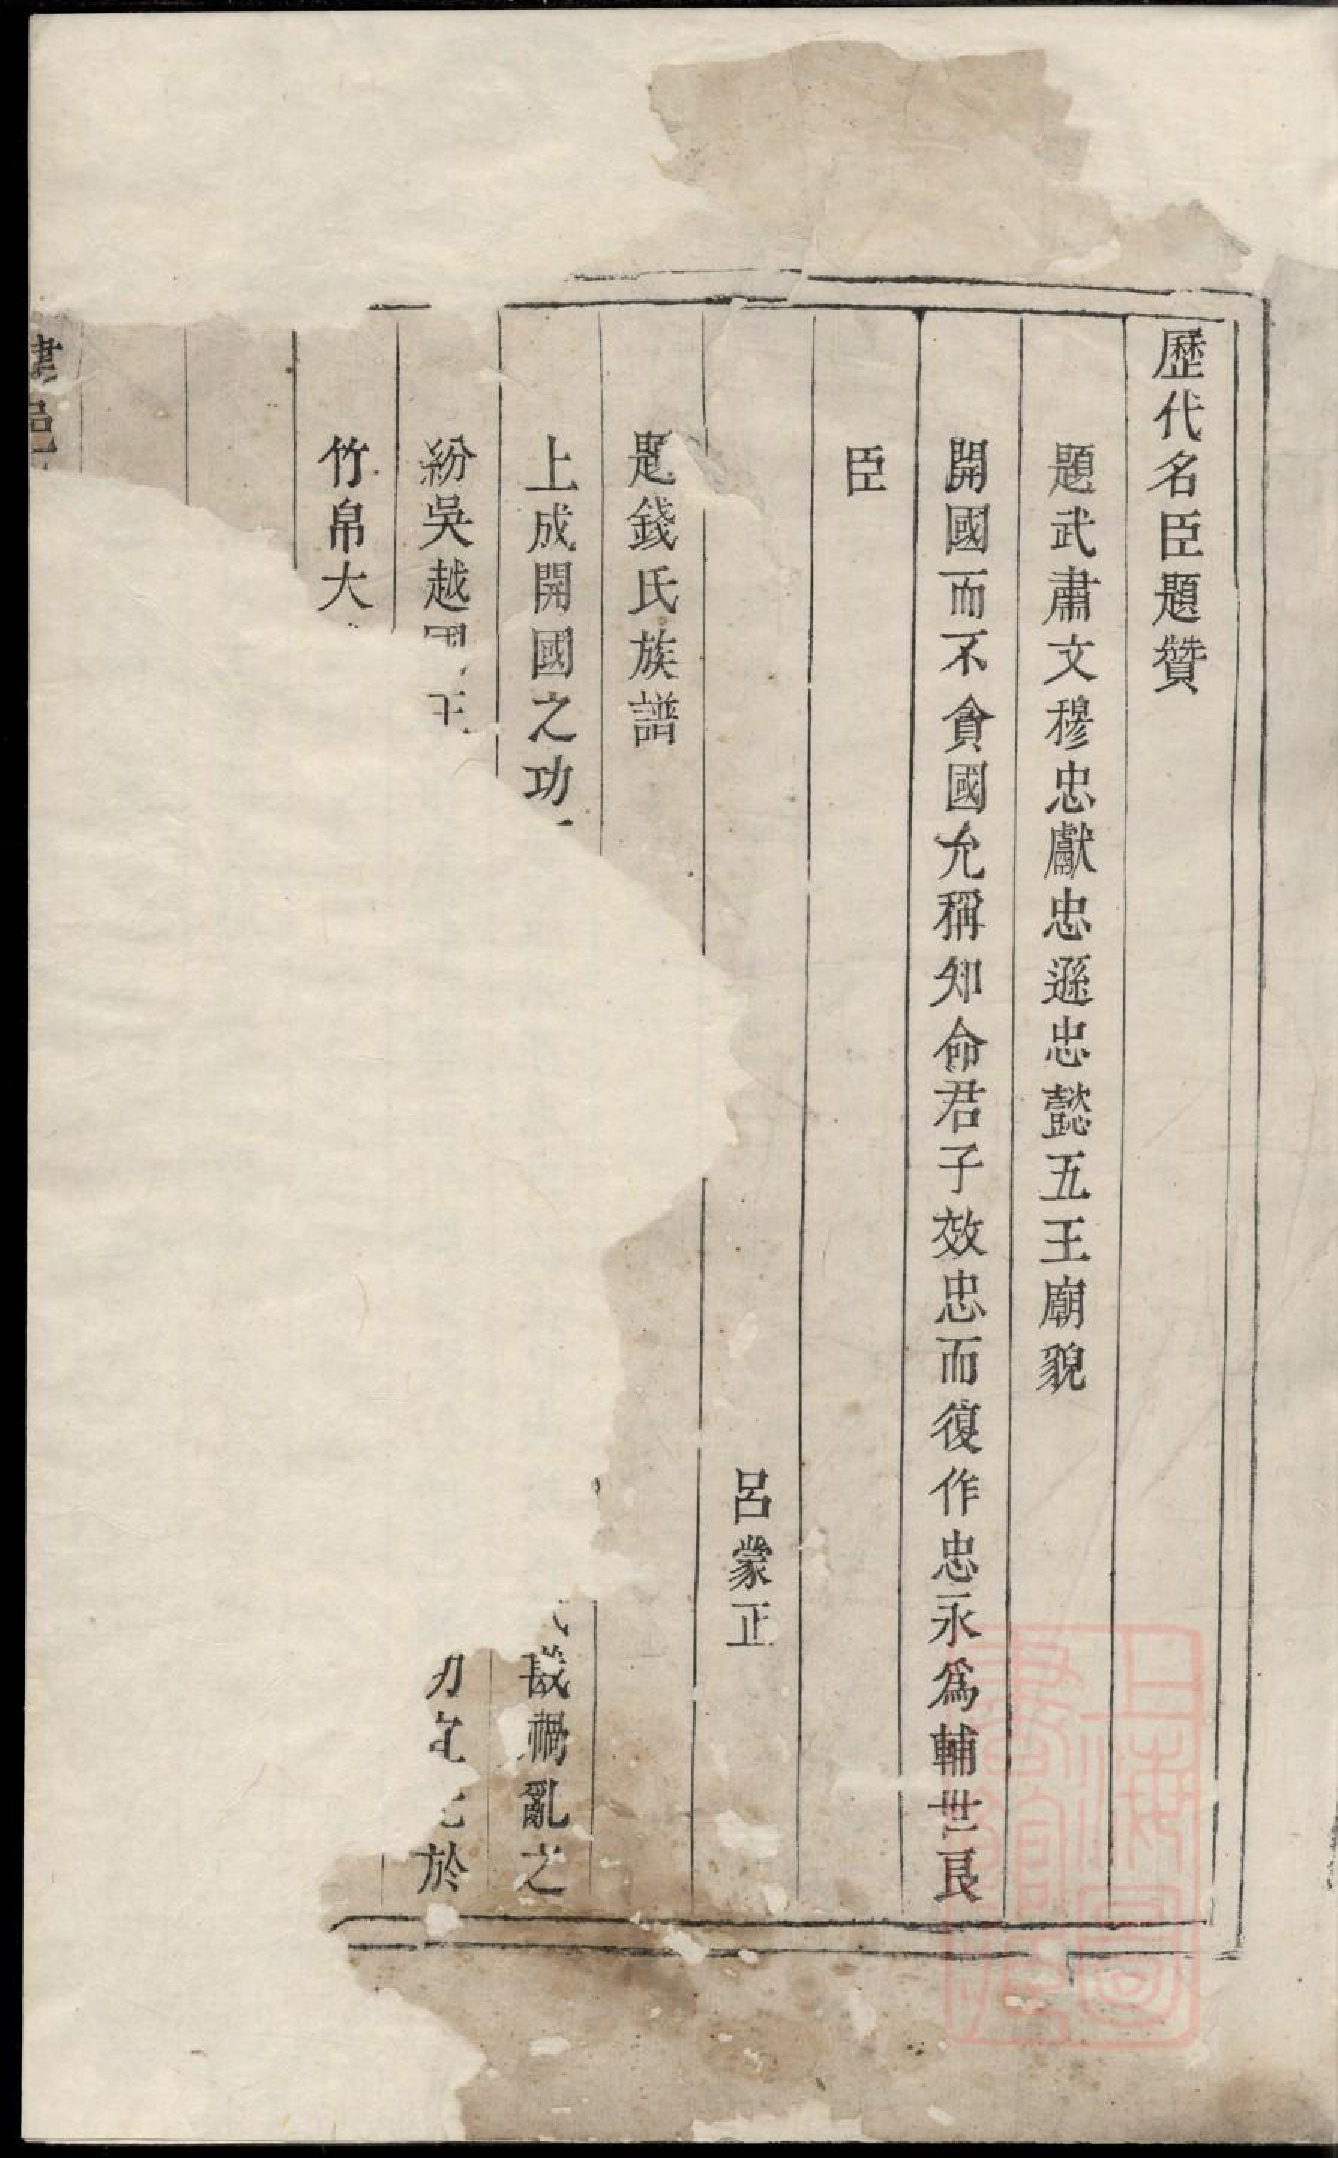 歷代名臣題贊
題武肅文穆忠獻忠遜忠懿五王廟貌
開國而不貪國允稱知命君子效忠而復作忠永爲輔世良
臣
呂蒙正
題錢氏族譜
上成開國之功 戡禍亂之
紛吳越國王 於
竹帛大